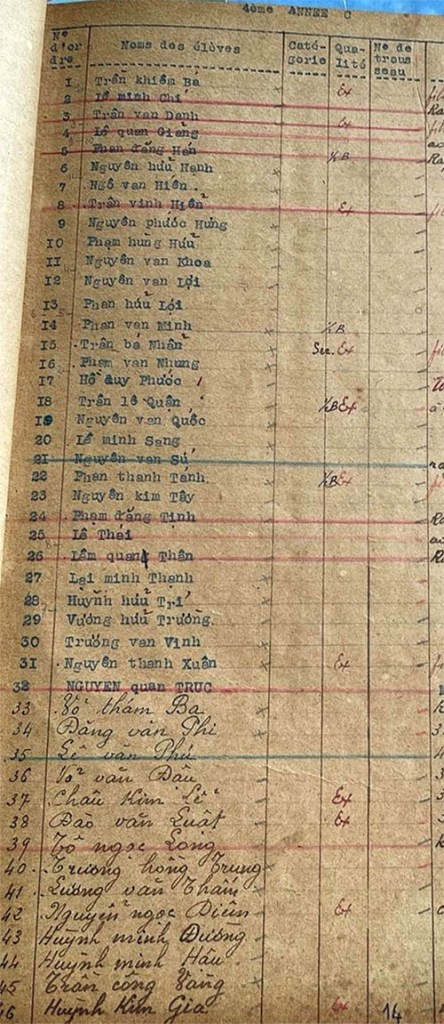 4ème ANNEE C
N° d'or dre Noms des élèves Caté- gorie Qua- lité N° de trous seau
1 Trần khiêm Ba Ex
2 Lê minh Chí
3 Trần van Danh Ex
4 Lê quan Giảng
5 Phan đăng Hàn ½B
6 Nguyễn hữu Hạnh
7 Ngô van Hiến
8 Trần vinh Hiển Ex
9 Nguyễn phước Hưng
10 Phạm hùng Hữu
11 Nguyễn van Khoa
12 Nguyễn van Lợi
13 Phan hữu Lợi
14 Phan van Minh ½B
15 Trần bá Nhẫn Ser. Ex
16 Phạm van Nhung
17 Hồ duy Phước
18 Trần lê Quận ½B Ex
19 Nguyễn van Quốc
20 Lê minh Sang
21 Nguyễn van Sử
22 Phan thanh Tánh ½B Ex
23 Nguyễn kim Tây
24 Phạm đăng Tịnh
25 Lê Thái
26 Lâm quang Thân
27 Lại minh Thanh
28 Huỳnh hữu Trí
29 Vương hữu Trường.
30 Trương van Vinh
31 Nguyễn thanh Xuân Ex
32 NGUYEN quan TRUC
33 Võ thám Ba
34 Đặng văn Phi
35 Lê văn Phú
36 Võ văn Đâu
37 Châu Kim Lê Ex
38 Đào văn Luật Ex
39 Tô ngọc Long
40 Trương hồng Trung
41 Lương văn Thấm
42 Nguyễn ngọc Diên Ex
43 Huỳnh minh Đường
44 Huỳnh minh Hâu
45 Trần công Vàng
46 Huỳnh Kim Gia Ex 14